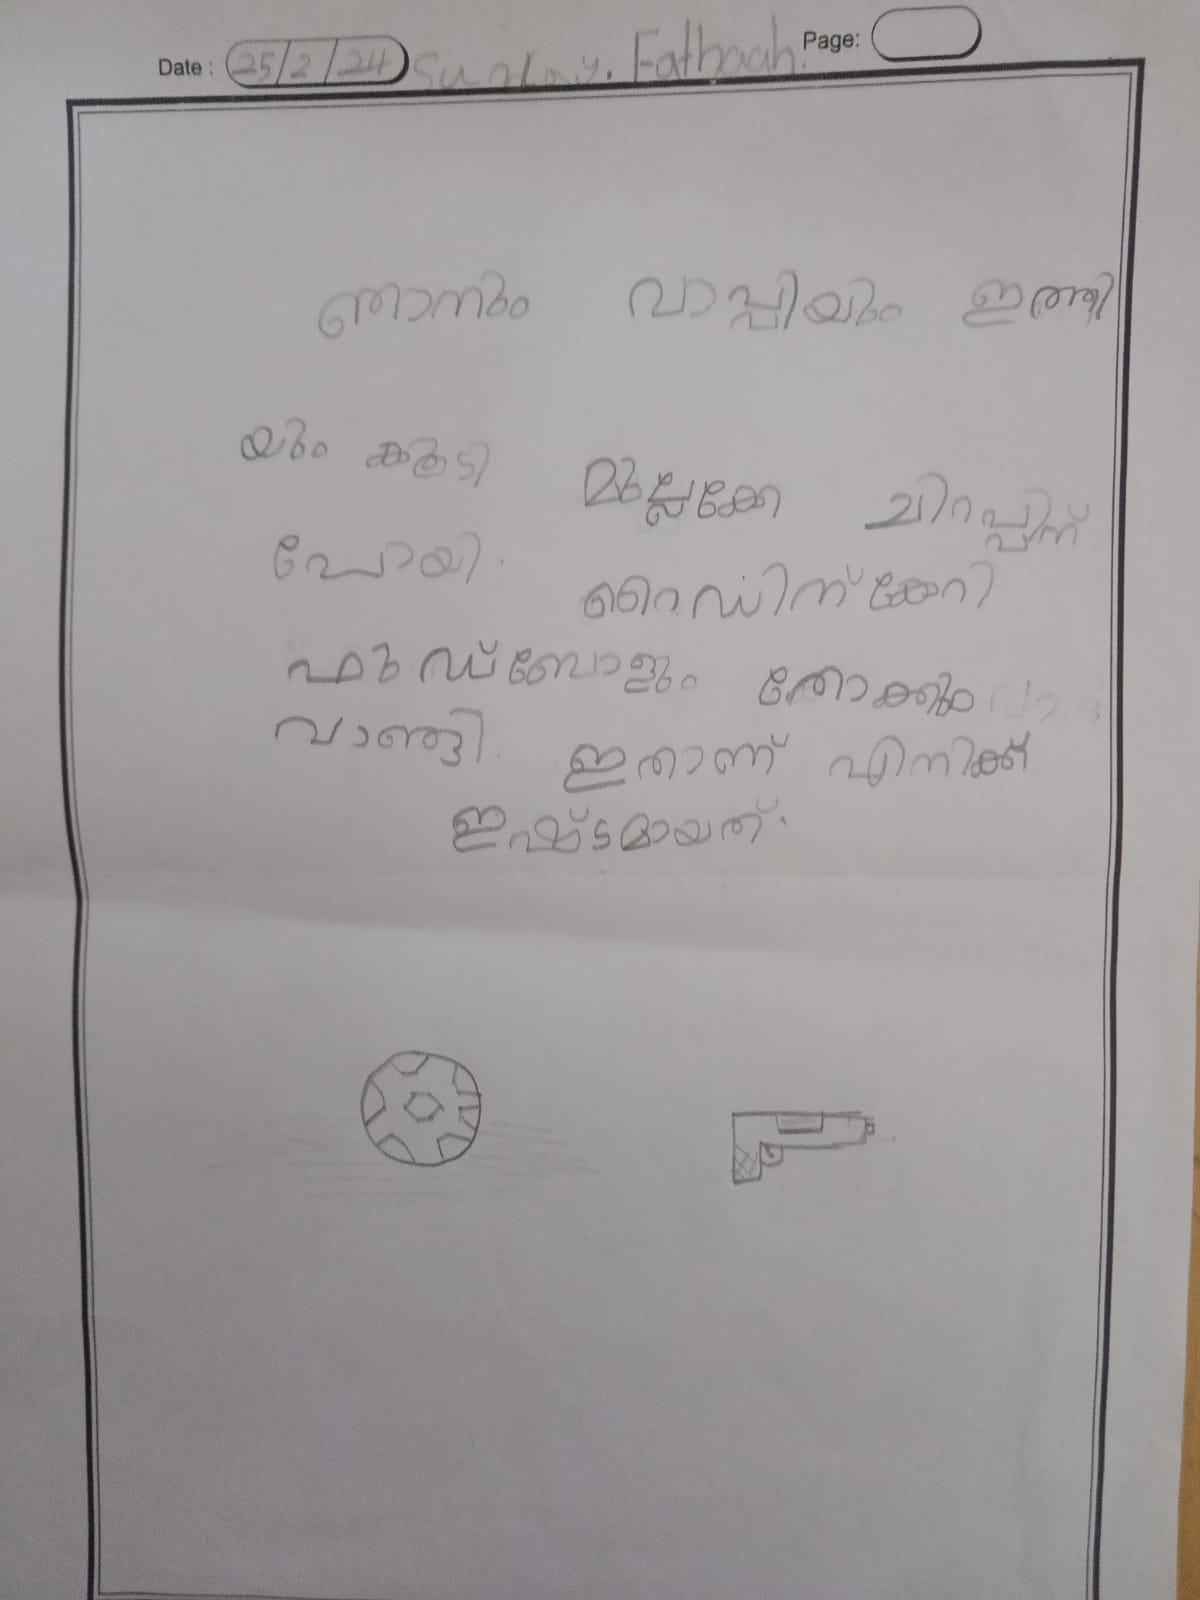 Date : 25/2/24 Sunday. Fathaah. Page:
ഞാനും വാപ്പിയും ഇത്തി
യും കൂടി മുല്ലക്കേ ചിറപ്പിന്
പോയി. റൈഡിന് കേറി
ഫുഡ്ബോളും തോക്കും
വാങ്ങി. ഇതാണ് എനിക്ക്
ഇഷ്ടമായത്.